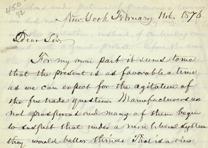 New York February 11th, 1876
Dear Sir,
For my own part it seems to me
that the present is as favorable a time
as we can expect for the agitation of
the free trade question. Manufacturers are
not prosperous and many of them begin
to suspect that under a more liberal system
they would better thrive. That is a view